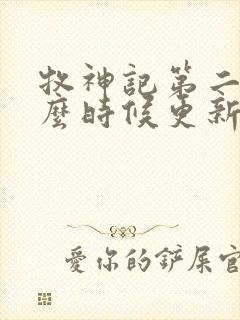 牧神記第二
麼時候更新
愛你的鏟屎官